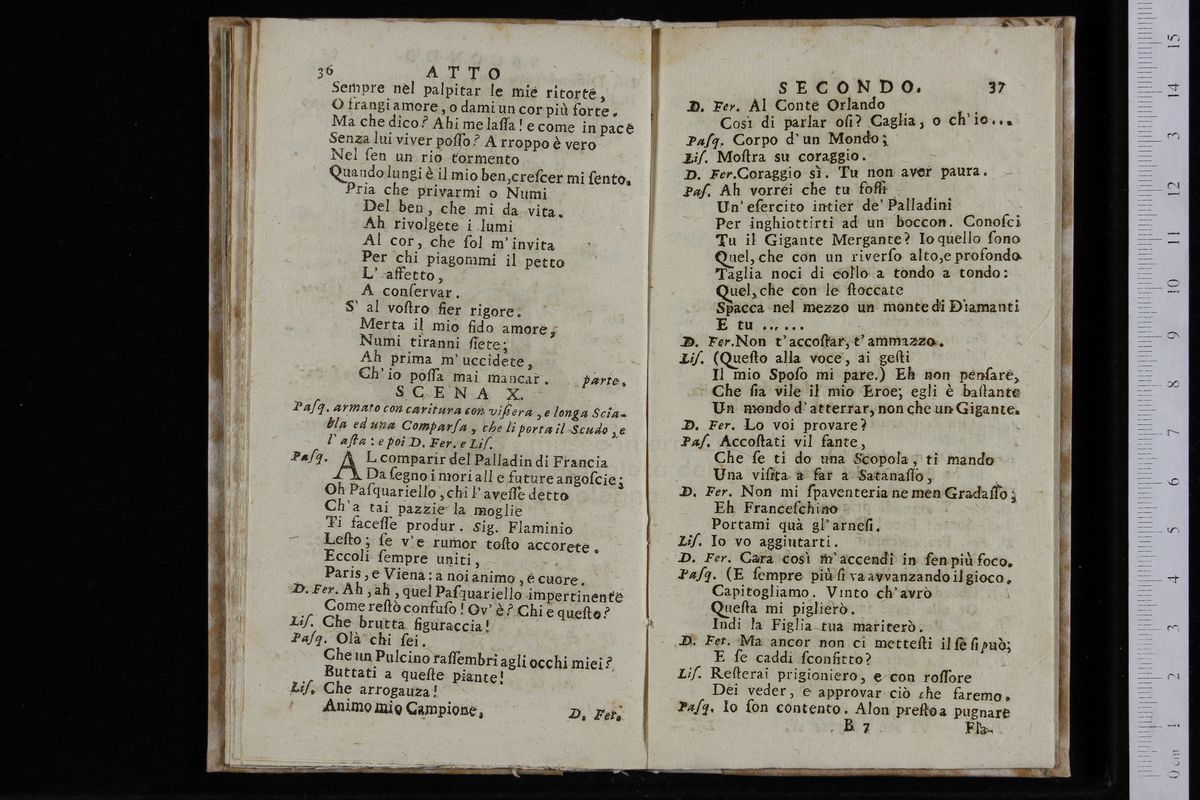 36 ATTO
Sempre nel palpitar le mie ritorte,
O frangi amore, o dami un cor più forte.
Ma che dico? Ahi me laſſa! e come in pace
Senza lui viver poſſo? A rroppo è vero
Nel ſen un rio tormento
Quando lungi è il mio ben, creſcer mi ſento.
Pria che privarmi o Numi
Del ben, che mi da vita.
Ah rivolgete i lumi
Al cor, che ſol m'invita
Per chi piagommi il petto
L' affetto,
A conſervar.
S' al voſtro fier rigore.
Merta il mio fido amore,
Numi tiranni ſiete;
Ah prima m'uccidete,
Ch'io poſſa mai mancar. parte.
SCENA X.
Paſq. armato con caritura con viſiera, e longa Scia-
bla ed una Comparſa, che li porta il Scudo, e
l' aſta: e poi D. Fer. e Liſ.
Paſq. AL comparir del Palladin di Francia
Da ſegno i mori all e future angoſcie;
Oh Paſquariello, chi l'aveſſe detto
Ch'a tai pazzie la moglie
Ti faceſſe produr. Sig. Flaminio
Leſto; ſe v'e rumor toſto accorete.
Eccoli ſempre uniti,
Paris, e Viena: a noi animo, e cuore.
D. Fer. Ah, ah, quel Paſquariello impertinente
Come reſtò confuſo! Ov'è? Chi e queſto?
Liſ. Che brutta figuraccia!
Paſq. Olà chi ſei.
Che un Pulcino raſſembri agli occhi miei?
Buttati a queſte piante!
Liſ. Che arrogauza!
Animo mio Campione,
D. Fer.
SECONDO. 37
D. Fer. Al Conte Orlando
Così di parlar oſi? Caglia, o ch'io...
Paſq. Corpo d'un Mondo;
Liſ. Moſtra su coraggio.
D. Fer. Coraggio sì. Tu non aver paura.
Paſ. Ah vorrei che tu foſſi
Un'eſercito intier de' Palladini
Per inghiottirti ad un boccon. Conoſci
Tu il Gigante Mergante? Io quello ſono
Quel, che con un riverſo alto, e profondo
Taglia noci di collo a tondo a tondo:
Quel, che con le ſtoccate
Spacca nel mezzo un monte di Diamanti
E tu ......
D. Fer. Non t'accoſtar, t'ammazzo.
Liſ. (Queſto alla voce, ai geſti
Il mio Spoſo mi pare.) Eh non penſare,
Che ſia vile il mio Eroe; egli è baſtante
Un mondo d'atterrar, non che un Gigante.
D. Fer. Lo voi provare?
Paſ. Accoſtati vil fante,
Che ſe ti do una Scopola, ti mando
Una viſita a far a Satanaſſo,
D. Fer. Non mi ſpaventeria ne men Gradaſſo;
Eh Franceſchino
Portami quà gl'arneſi.
Liſ. Io vo aggiutarti.
D. Fer. Cara così m'accendi in ſen più foco.
Paſq. (E ſempre più ſi va avvanzando il gioco.
Capitogliamo. Vinto ch'avrò
Queſta mi piglierò.
Indi la Figlia tua mariterò.
D. Fer. Ma ancor non ci metteſti il ſe ſi può;
E ſe caddi ſconfitto?
Liſ. Reſterai prigioniero, e con roſſore
Dei veder, e approvar ciò che faremo.
Paſq. Io ſon contento. Alon preſto a pugnare
B 7 Fla-
0 cm 1 2 3 4 5 6 7 8 9 10 11 12 13 14 15